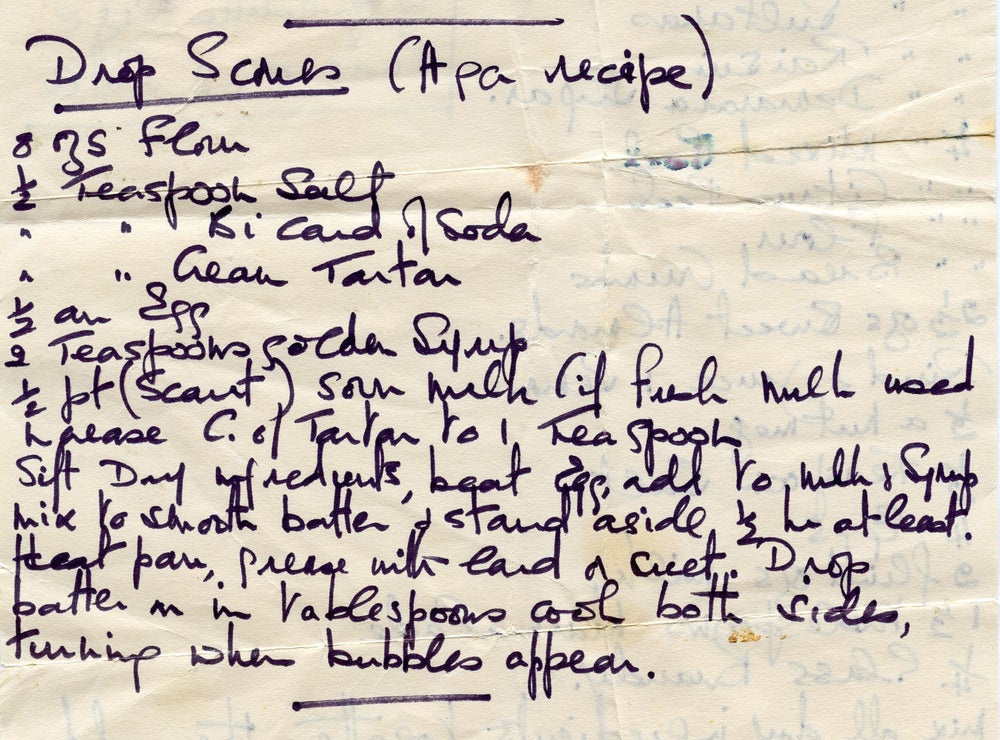 Drop Scones (Aga recipe)
8 ozs Flour
½ Teaspoon Salt
" " Bi Carb of Soda
" " Cream Tartar
½ an Egg
2 Teaspoons golden Syrup
½ pt (scant) sour milk (if fresh milk used
increase C. of Tartar to 1 Teaspoon
Sift Dry ingredients, beat Egg, add to milk & Syrup
mix to smooth batter & stand aside ½ hr at least.
Heat pan, grease with lard or suet. Drop
batter in in tablespoons cook both sides,
turning when bubbles appear.